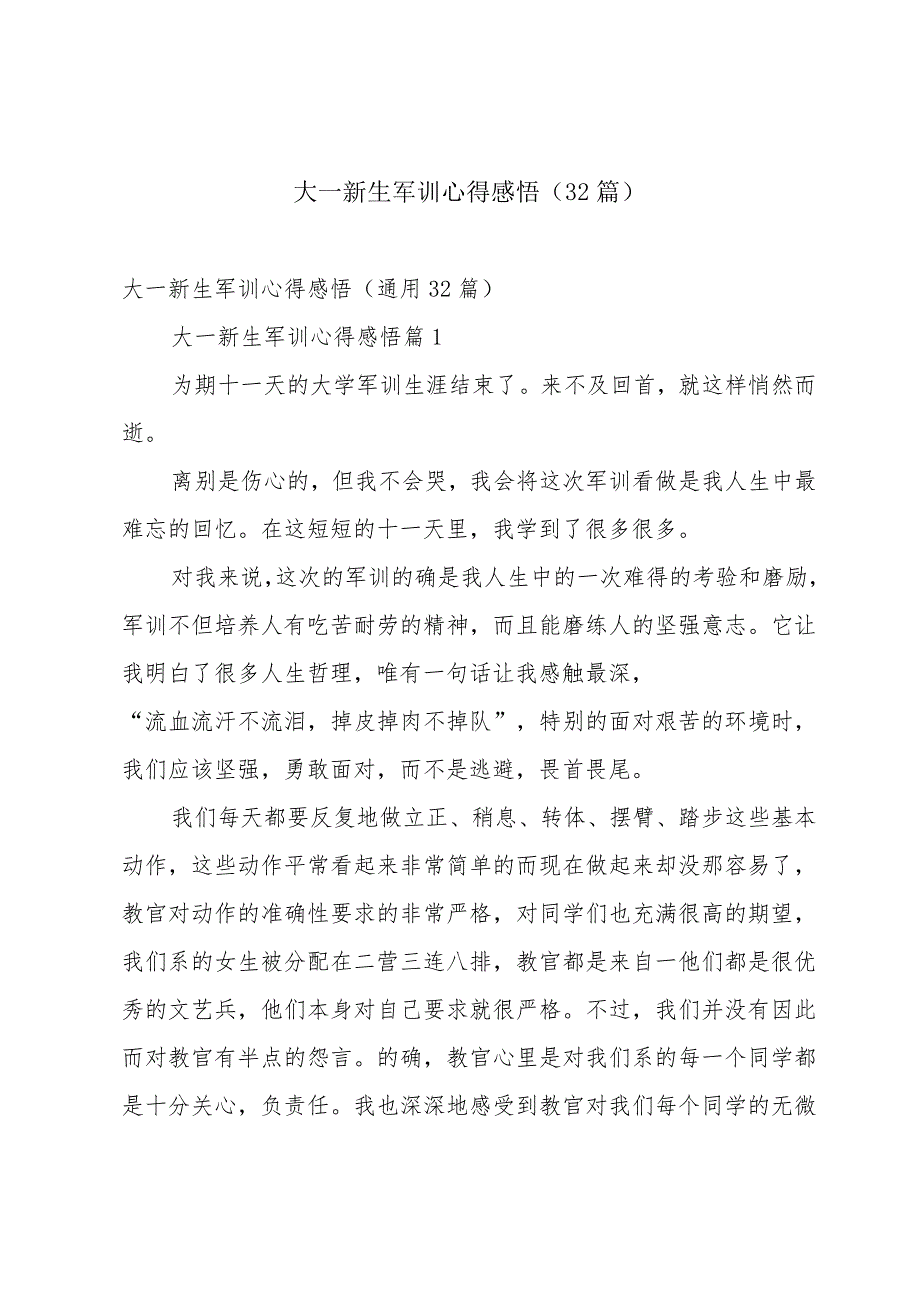 大一新生军训心得感悟（32 篇）
大一新生军训心得感悟（通用 32 篇）
大一新生军训心得感悟篇 1
为期十一天的大学军训生涯结束了。来不及回首，就这样悄然而
逝。
离别是伤心的，但我不会哭，我会将这次军训看做是我人生中最
难忘的回忆。在这短短的十一天里，我学到了很多很多。
对我来说，这次的军训的确是我人生中的一次难得的考验和磨励，
军训不但培养人有吃苦耐劳的精神，而且能磨练人的坚强意志。它让
我明白了很多人生哲理，唯有一句话让我感触最深，
“流血流汗不流泪，掉皮掉肉不掉队”，特别的面对艰苦的环境时，
我们应该坚强，勇敢面对，而不是逃避，畏首畏尾。
我们每天都要反复地做立正、稍息、转体、摆臂、踏步这些基本
动作，这些动作平常看起来非常简单的而现在做起来却没那容易了，
教官对动作的准确性要求的非常严格，对同学们也充满很高的期望，
我们系的女生被分配在二营三连八排，教官都是来自一他们都是很优
秀的文艺兵，他们本身对自己要求就很严格。不过，我们并没有因此
而对教官有半点的怨言。的确，教官心里是对我们系的每一个同学都
是十分关心，负责任。我也深深地感受到教官对我们每个同学的无微